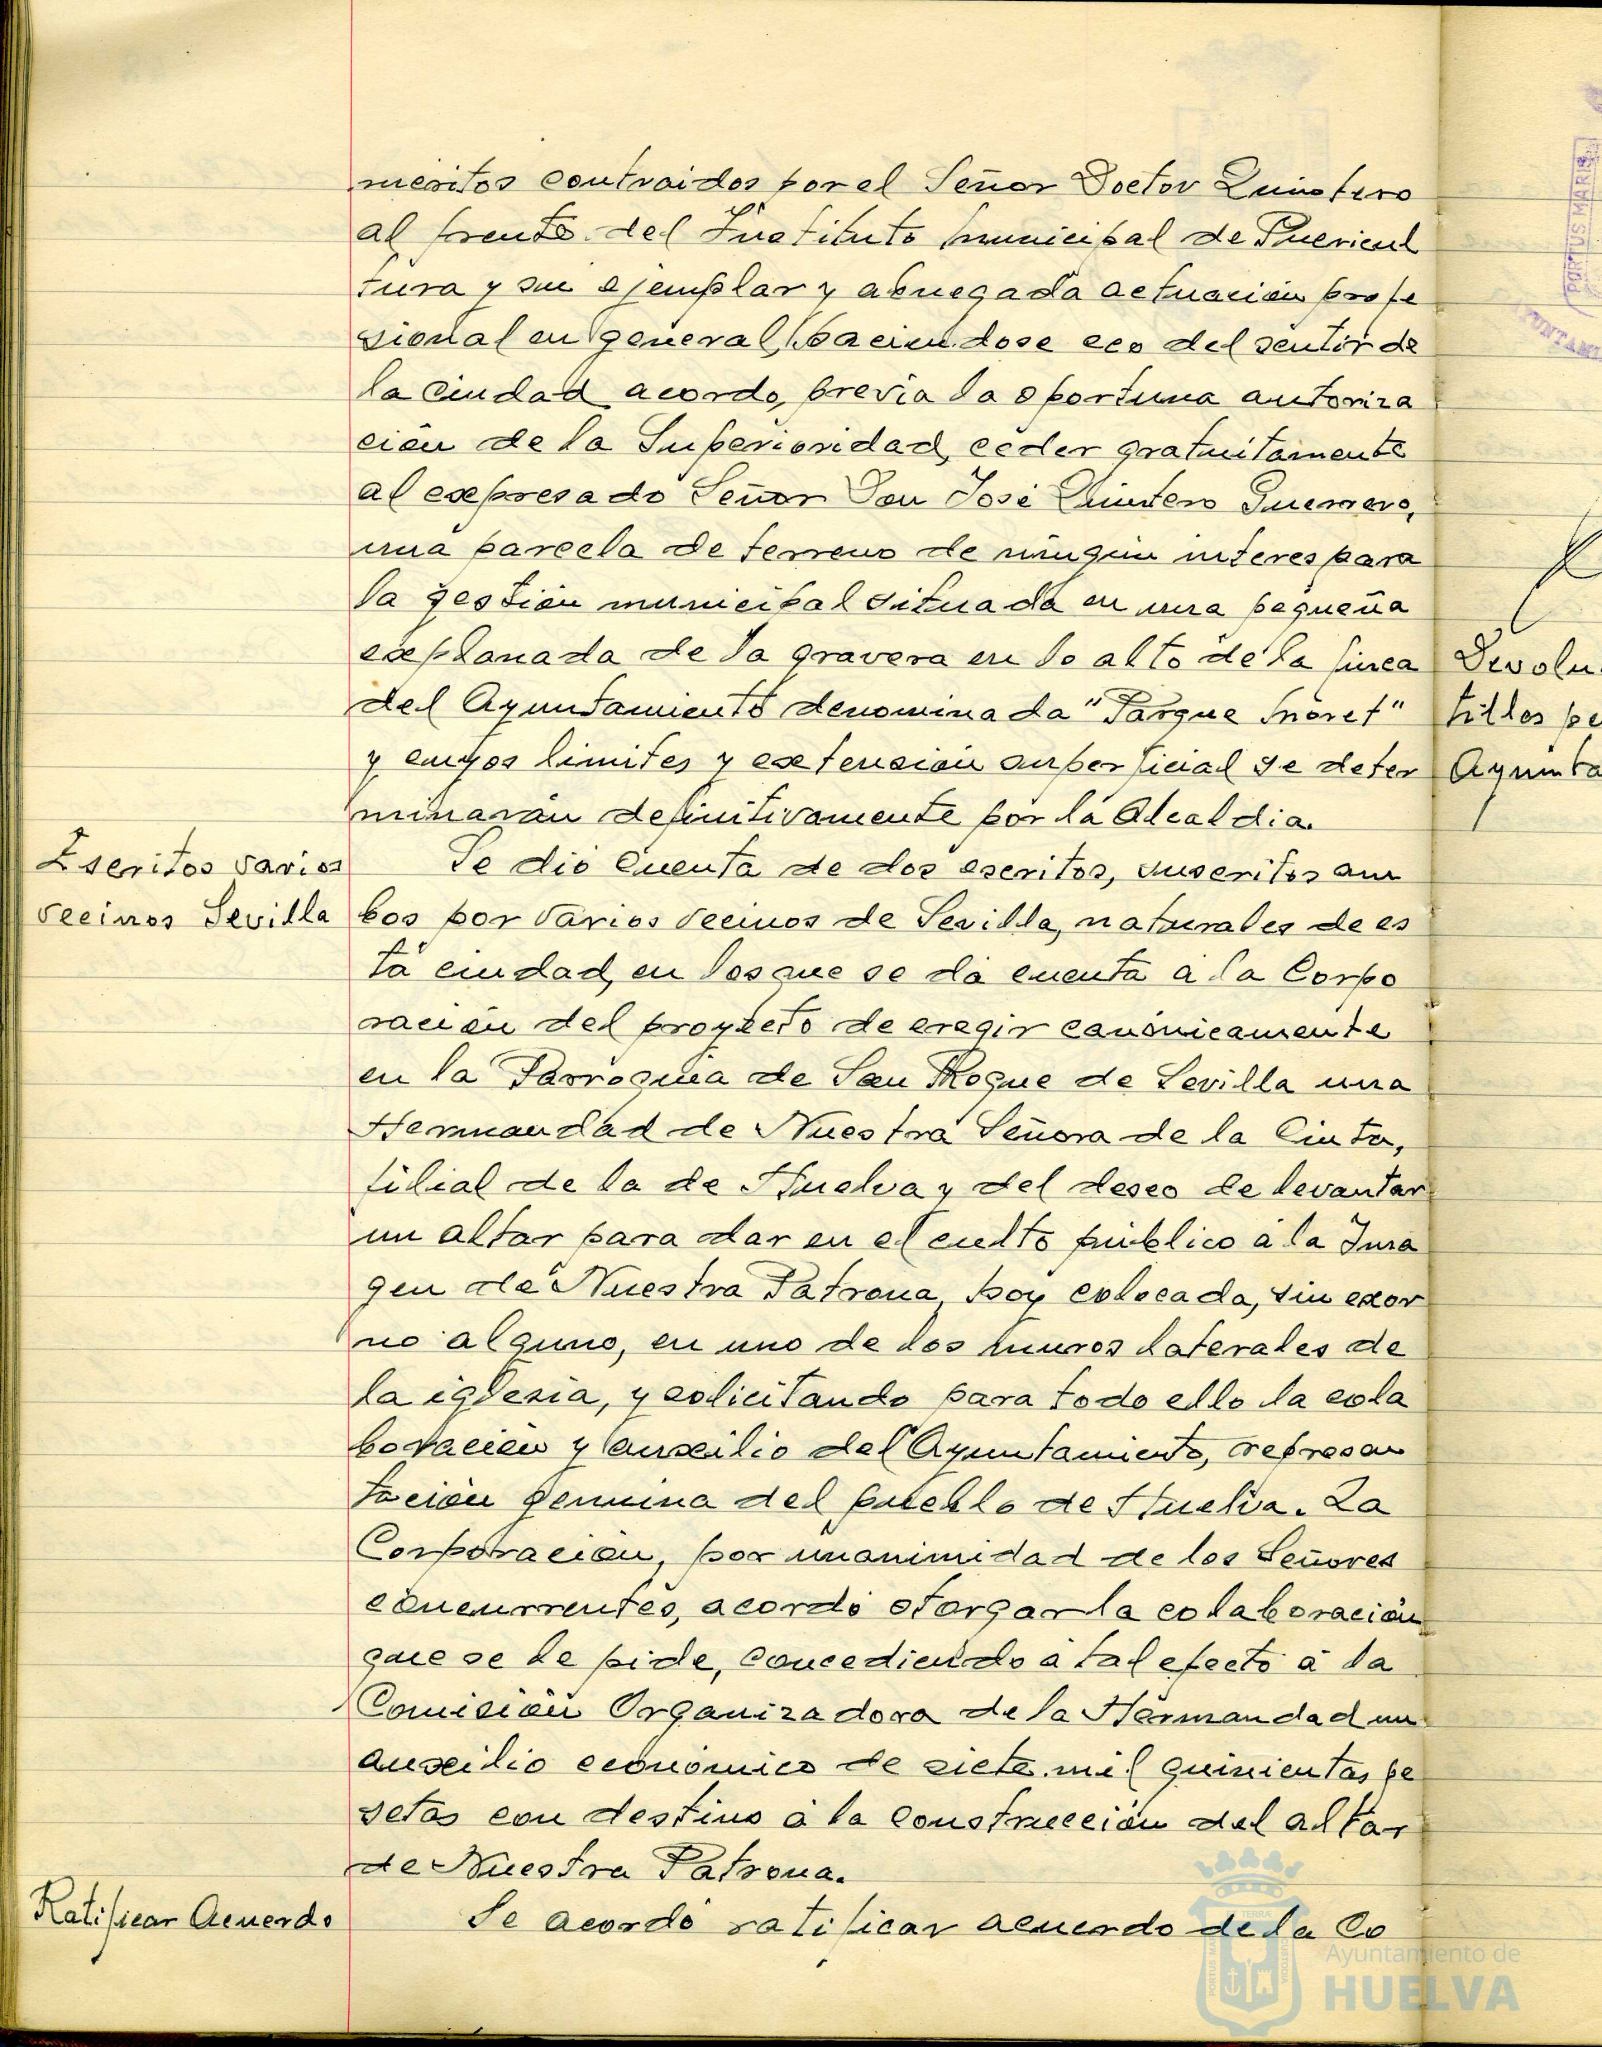 meritos contraidos por el Señor Doctor Quintero
al frente del Instituto Municipal de Puericul
tura y su ejemplar y abnegada actuación profe
sional en general, haciendose eco del sentir de
la Ciudad acordo, previa la oportuna autoriza
ción de la Superioridad, ceder gratuitamente
al expresado Señor Don José Quintero Guerrero,
una parcela de terreno de ningún interes para
la gestión municipal situada en una pequeña
explanada de la gravera en lo alto de la finca
del Ayuntamiento denominada "Parque Moret"
y cuyos limites y extensión superficial se deter
minarán definitivamente por la Alcaldia.
Escritos varios
vecinos Sevilla
Se dió Cuenta de dos escritos, suscritos am
bos por varios vecinos de Sevilla, naturales de es
ta ciudad, en los que se dá cuenta á la Corpo
ración del proyecto de eregir canónicamente
en la Parroquia de San Roque de Sevilla una
Hermandad de Nuestra Señora de la Cinta,
filial de la de Huelva y del deseo de levantar
un altar para dar en el culto público á la Ima
gen de Nuestra Patrona, hoy colocada, sin exor
no alguno, en uno de los muros laterales de
la iglesia, y solicitando para todo ello la cola
boración y auxilio del Ayuntamiento, represen
tación genuina del pueblo de Huelva. La
Corporación, por unanimidad de los Señores
concurrentes, acordó otorgar la colaboración
que se le pide, concediendo á tal efecto á la
Comisión Organizadora de la Hermandad un
auxilio económico de siete mil quinientas pe
setas con destino á la construcción del altar
de Nuestra Patrona.
Ratificar Acuerdo
Se acordó ratificar acuerdo de la Co
Devolu
tillos pe
Ayunta
PORTUS MARIS
AYUNTAMI
Ayuntamiento de
HUELVA